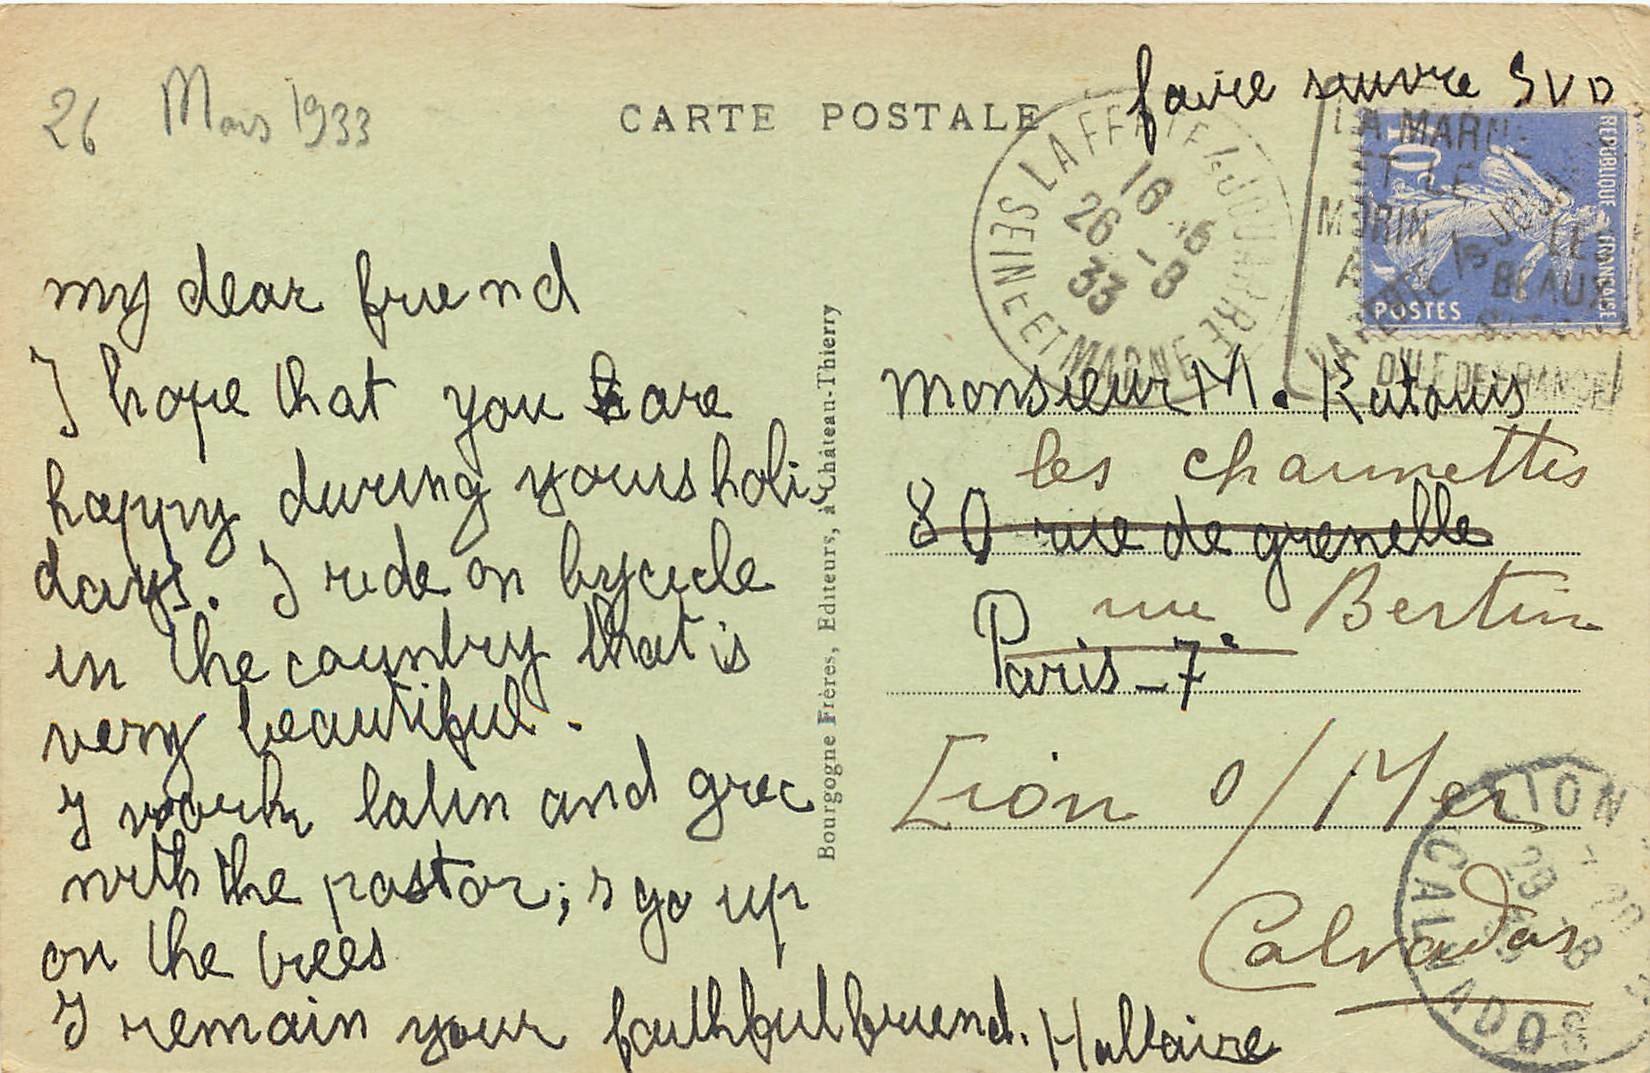 26 Mars 1933
CARTE POSTALE
faire suivre SVP
LA FERTE S JOUARRE
SEINE ET MARNE
16
26 -8
33
LA MARNE
ET LE
MORIN
POSTES
REPUBLIQUE FRANÇAISE
my dear friend
I hope that you are
happy during yours holi-
days. I ride on bycicle
in the country that is
very beautiful.
I work latin and grec
with the pastor; I go up
on the trees
I remain your faithful friend. Hallaire
Bourgogne Frères, Editeurs, à Château-Thierry
Monsieur M. Ratouis
les charmettes
80 rue de grenelle
rue Bertin
Paris - 7e
Lion s/ Mer
Calvados
LION
CALVADOS